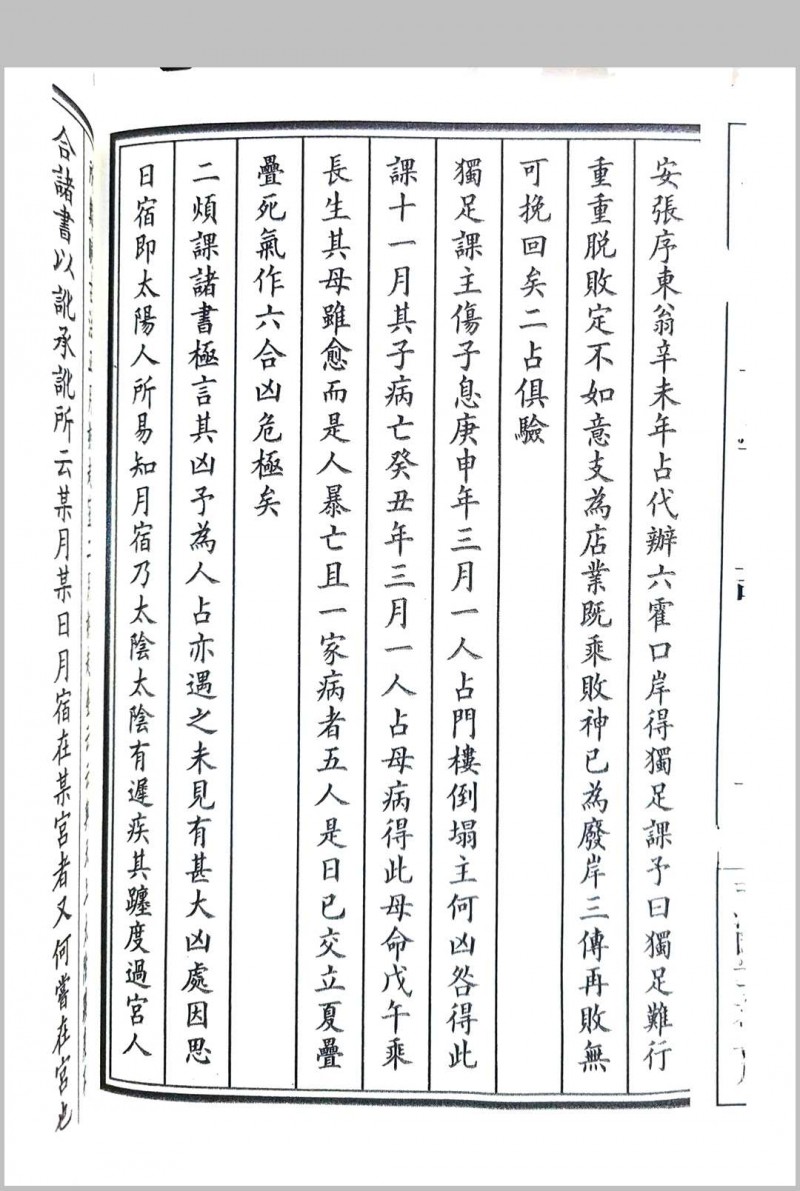 安張序東翁辛未年占代辦六霍口岸得獨足課予曰獨足難行
重重脫敗定不如意支為店業既乘敗神已為廢岸三傳再敗無
可挽回矣二占俱驗
獨足課主傷子息庚申年三月一人占門樓倒塌主何凶咎得此
課十一月其子病亡癸丑年三月一人占母病得此母命戊午乘
長生其母雖愈而是人暴亡且一家病者五人是日已交立夏疊
疊死氣作六合凶危極矣
二煩課諸書極言其凶予為人占亦遇之未見有甚大凶處因思
日宿即太陽人所易知月宿乃太陰太陰有遲疾其躔度過宮人
合諸書以訛承訛所云某月某日月宿在某宮者又何嘗在宮也